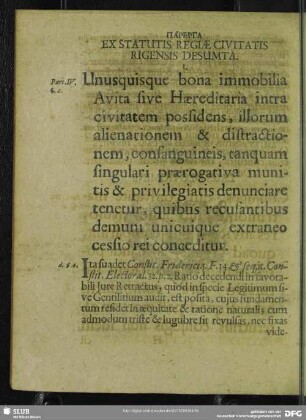 ΠΑΡΕΡΓΑ
EX STATUTIS REGIÆ CIVITATIS
RIGENSIS DESUMTA.
I.
Unusquisque bona immobilia
Avita sive Hæreditaria intra
civitatem possidens, illorum
alienationem & distractio-
nem, consanguineis, tanquam
singulari prærogativa muni-
tis & privilegiatis denunciare
tenetur, quibus recusantibus
demum unicuique extraneo
cessio rei conceditur.
Ita suadet Constit. Friderici 2. F. 14. & seqq. Con-
stit. Electoral. Ratio decedendi in favora-
bili Jure Retractus, quod in specie Legitimum si-
ve Gentilitium audit, est posita, cujus fundamen-
tum residet in æquitate & ratione naturali: cum
admodum triste & lugubre sit revulsas, nec fixas
vide-
SLUB
DFG